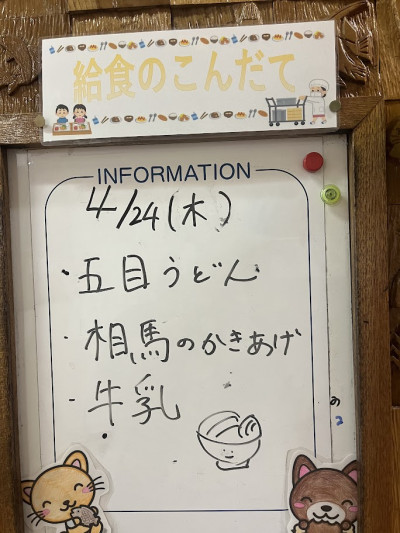 給食のこんだて
INFORMATION
4/24(木)
・五目うどん
・相馬のかきあげ
・牛乳
・
の
2